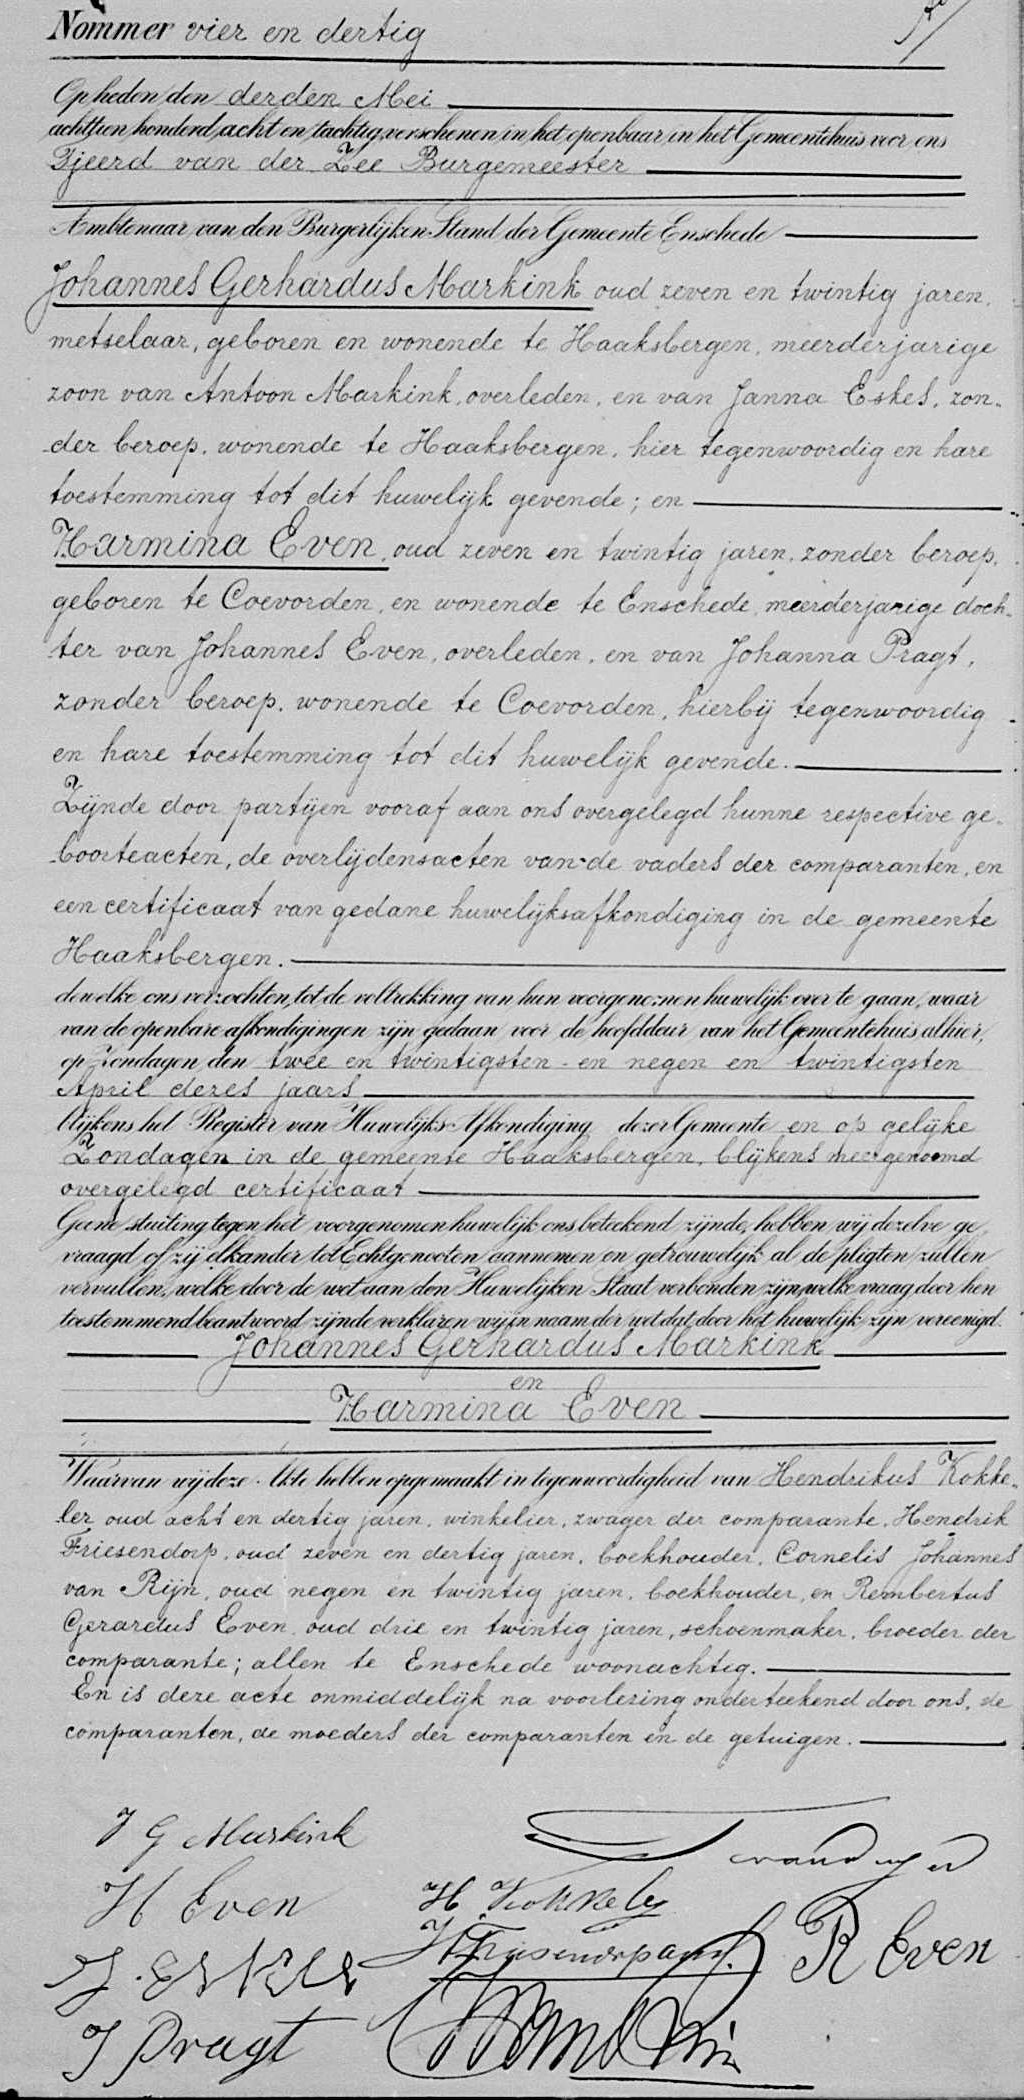 Nommer vier en dertig
Op heden den derden Mei
achttien honderd acht en tachtig, verschenen in het openbaar in het Gemeentehuis voor ons
Tjeerd van der Zee Burgemeester
Ambtenaar van den Burgerlijken Stand der Gemeente Enschede
Johannes Gerhardus Markink oud zeven en twintig jaren,
metselaar, geboren en wonende te Haaksbergen, meerderjarige
zoon van Antoon Markink, overleden, en van Janna Eskes, zon-
der beroep, wonende te Haaksbergen, hier tegenwoordig en hare
toestemming tot dit huwelijk gevende; en
Harmina Even, oud zeven en twintig jaren, zonder beroep,
geboren te Coevorden, en wonende te Enschede, meerderjarige doch-
ter van Johannes Even, overleden, en van Johanna Pragt,
zonder beroep, wonende te Coevorden, hierbij tegenwoordig
en hare toestemming tot dit huwelijk gevende.
Zijnde door partijen vooraf aan ons overgelegd hunne respective ge-
boorteacten, de overlijdensacten van de vaders der comparanten, en
een certificaat van gedane huwelijksafkondiging in de gemeente
Haaksbergen.
dewelke ons verzochten, tot de voltrekking van hun voorgenomen huwelijk over te gaan, waar
van de openbare afkondigingen zijn gedaan voor de hoofddeur van het Gemeentehuis alhier,
op Zondagen den twee en twintigsten en negen en twintigsten
April dezes jaars
blijkens het Register van Huwelijks-Afkondiging dezer Gemeente en op gelijke
Zondagen in de gemeente Haaksbergen, blijkens meergenoemd
overgelegd certificaat
Geene stuiting tegen het voorgenomen huwelijk ons beteekend zijnde, hebben wij dezelve ge
vraagd of zij elkander tot Echtgenooten aannemen en getrouwelijk al de pligten zullen
vervullen, welke door de wet aan den Huwelijken Staat verbonden zijn, welke vraag door hen
toestemmend beantwoord zijnde verklaren wij in naam der wet dat door het huwelijk zijn vereenigd.
Johannes Gerhardus Markink
en
Harmina Even
Waarvan wij deze Akte hebben opgemaakt in tegenwoordigheid van Hendrikus Kokke-
ler oud acht en dertig jaren, winkelier, zwager der comparante, Hendrik
Friesendorp, oud zeven en dertig jaren, boekhouder, Cornelis Johannes
van Rijn, oud negen en twintig jaren, boekhouder, en Rembertus
Gerardus Even, oud drie en twintig jaren, schoenmaker, broeder der
comparante; allen te Enschede woonachtig.
En is deze acte onmiddelijk na voorlezing onderteekend door ons, de
comparanten, de moeders der comparanten en de getuigen.
J G Markink
H Even
H Kokkeler
R Even
J. Eskes
J Pragt